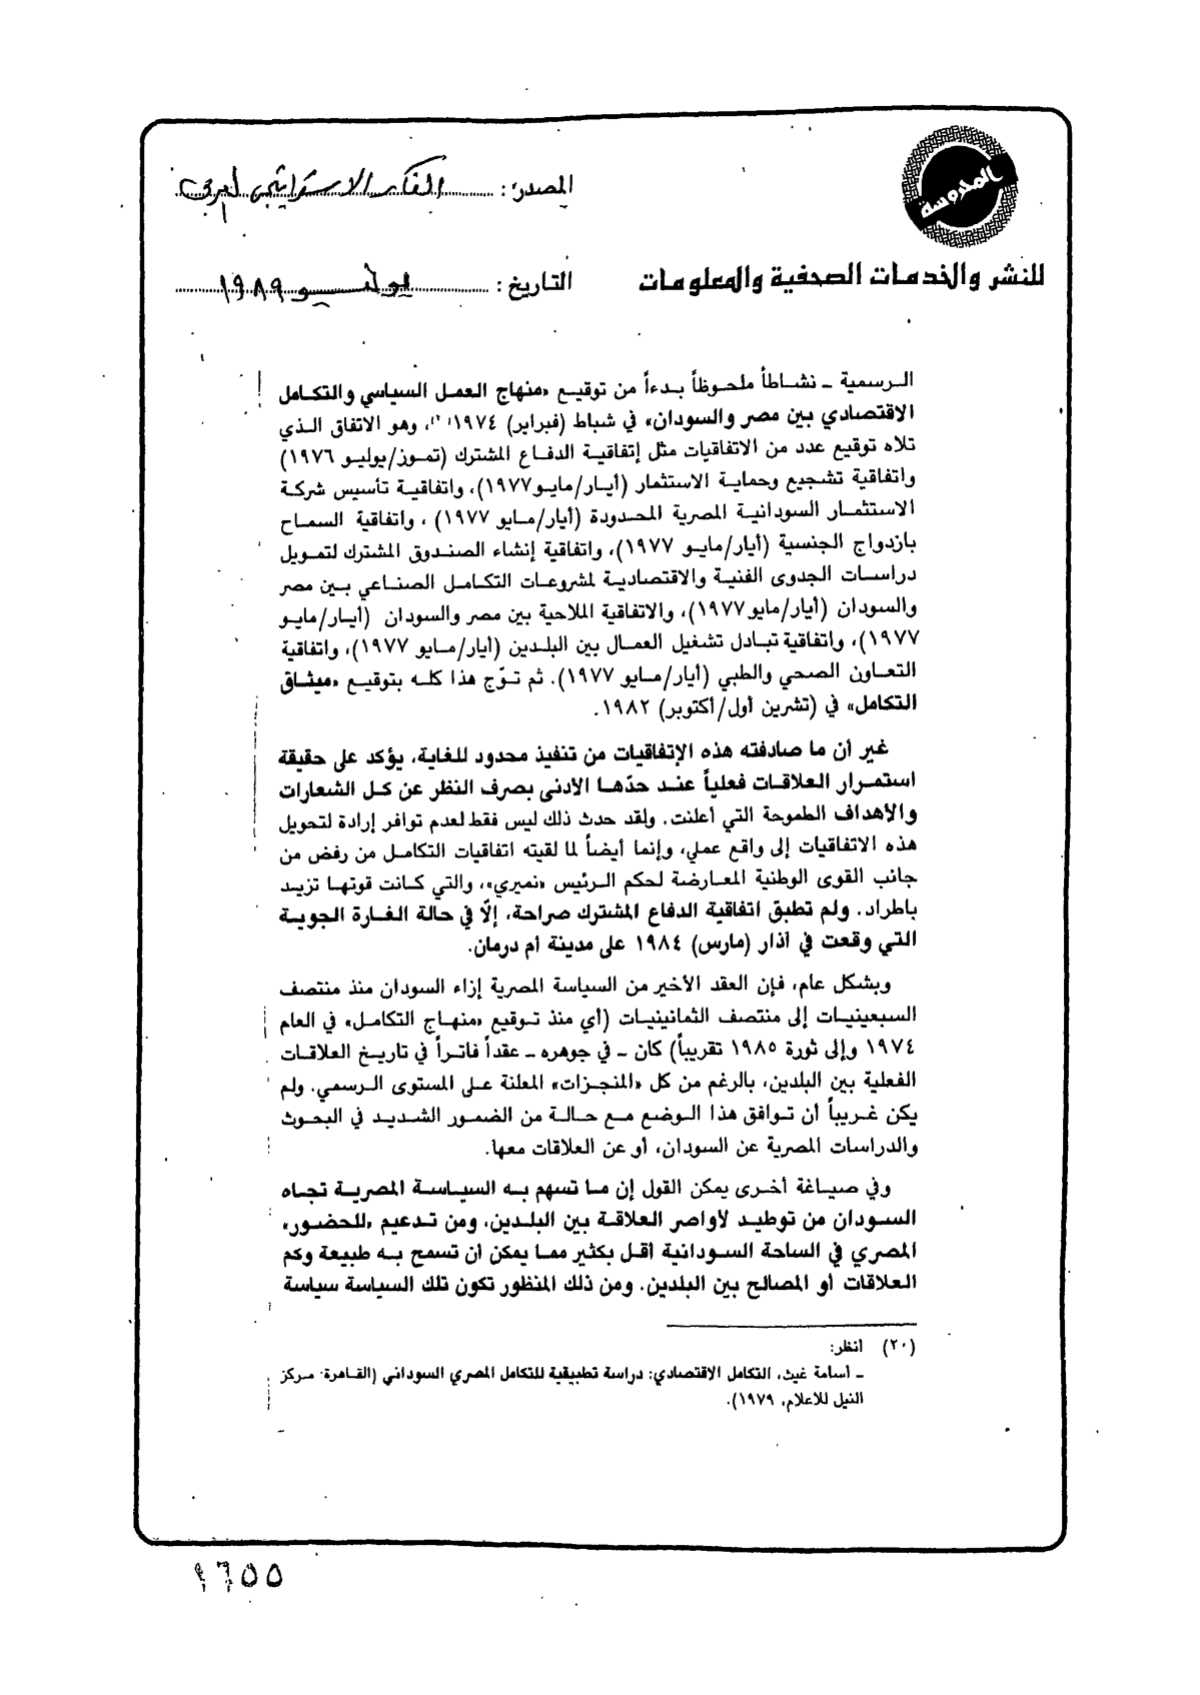 المحروسة
للنشر والخدمات الصحفية والمعلومات
المصدر: الفكر الاستراتيجي العربي
التاريخ: يوليو ١٩٨٩
الرسمية - نشاطاً ملحوظاً بدءاً من توقيع «منهاج العمل السياسي والتكامل
الاقتصادي بين مصر والسودان» في شباط (فبراير) ١٩٧٤(٢٠)، وهو الاتفاق الذي
تلاه توقيع عدد من الاتفاقيات مثل إتفاقية الدفاع المشترك (تموز/يوليو ١٩٧٦)
واتفاقية تشجيع وحماية الاستثمار (أيار/مايو١٩٧٧)، واتفاقية تأسيس شركة
الاستثمار السودانية المصرية المحدودة (أيار/مايو ١٩٧٧) ، واتفاقية السماح
بازدواج الجنسية (أيار/مايو ١٩٧٧)، واتفاقية إنشاء الصندوق المشترك لتمويل
دراسات الجدوى الفنية والاقتصادية لمشروعات التكامل الصناعي بين مصر
والسودان (أيار/مايو١٩٧٧)، والاتفاقية الملاحية بين مصر والسودان (أيار/مايو
١٩٧٧)، واتفاقية تبادل تشغيل العمال بين البلدين (أيار/مايو ١٩٧٧)، واتفاقية
التعاون الصحي والطبي (أيار/مايو ١٩٧٧). ثم توّج هذا كله بتوقيع «ميثاق
التكامل» في (تشرين أول/أكتوبر) ١٩٨٢.
غير أن ما صادفته هذه الإتفاقيات من تنفيذ محدود للغاية، يؤكد على حقيقة
استمرار العلاقات فعلياً عند حدّها الأدنى بصرف النظر عن كل الشعارات
والأهداف الطموحة التي أعلنت. ولقد حدث ذلك ليس فقط لعدم توافر إرادة لتحويل
هذه الاتفاقيات إلى واقع عملي، وإنما أيضاً لما لقيته اتفاقيات التكامل من رفض من
جانب القوى الوطنية المعارضة لحكم الرئيس «نميري»، والتي كانت قوتها تزيد
باطراد. ولم تطبق اتفاقية الدفاع المشترك صراحة، إلّا في حالة الغارة الجوية
التي وقعت في أذار (مارس) ١٩٨٤ على مدينة أم درمان.
وبشكل عام، فإن العقد الأخير من السياسة المصرية إزاء السودان منذ منتصف
السبعينيات إلى منتصف الثمانينيات (أي منذ توقيع «منهاج التكامل» في العام
١٩٧٤ وإلى ثورة ١٩٨٥ تقريباً) كان - في جوهره - عقداً فاتراً في تاريخ العلاقات
الفعلية بين البلدين، بالرغم من كل «المنجزات» المعلنة على المستوى الرسمي. ولم
يكن غريباً أن توافق هذا الوضع مع حالة من الضمور الشديد في البحوث
والدراسات المصرية عن السودان، أو عن العلاقات معها.
وفي صياغة أخرى يمكن القول إن ما تسهم به السياسة المصرية تجاه
السودان من توطيد لأواصر العلاقة بين البلدين، ومن تدعيم «للحضور»
المصري في الساحة السودانية أقل بكثير مما يمكن أن تسمح به طبيعة وكم
العلاقات أو المصالح بين البلدين. ومن ذلك المنظور تكون تلك السياسة سياسة
(٢٠) انظر:
- أسامة غيث، التكامل الاقتصادي: دراسة تطبيقية للتكامل المصري السوداني (القاهرة: مركز
النيل للاعلام، ١٩٧٩).
١٦٥٥